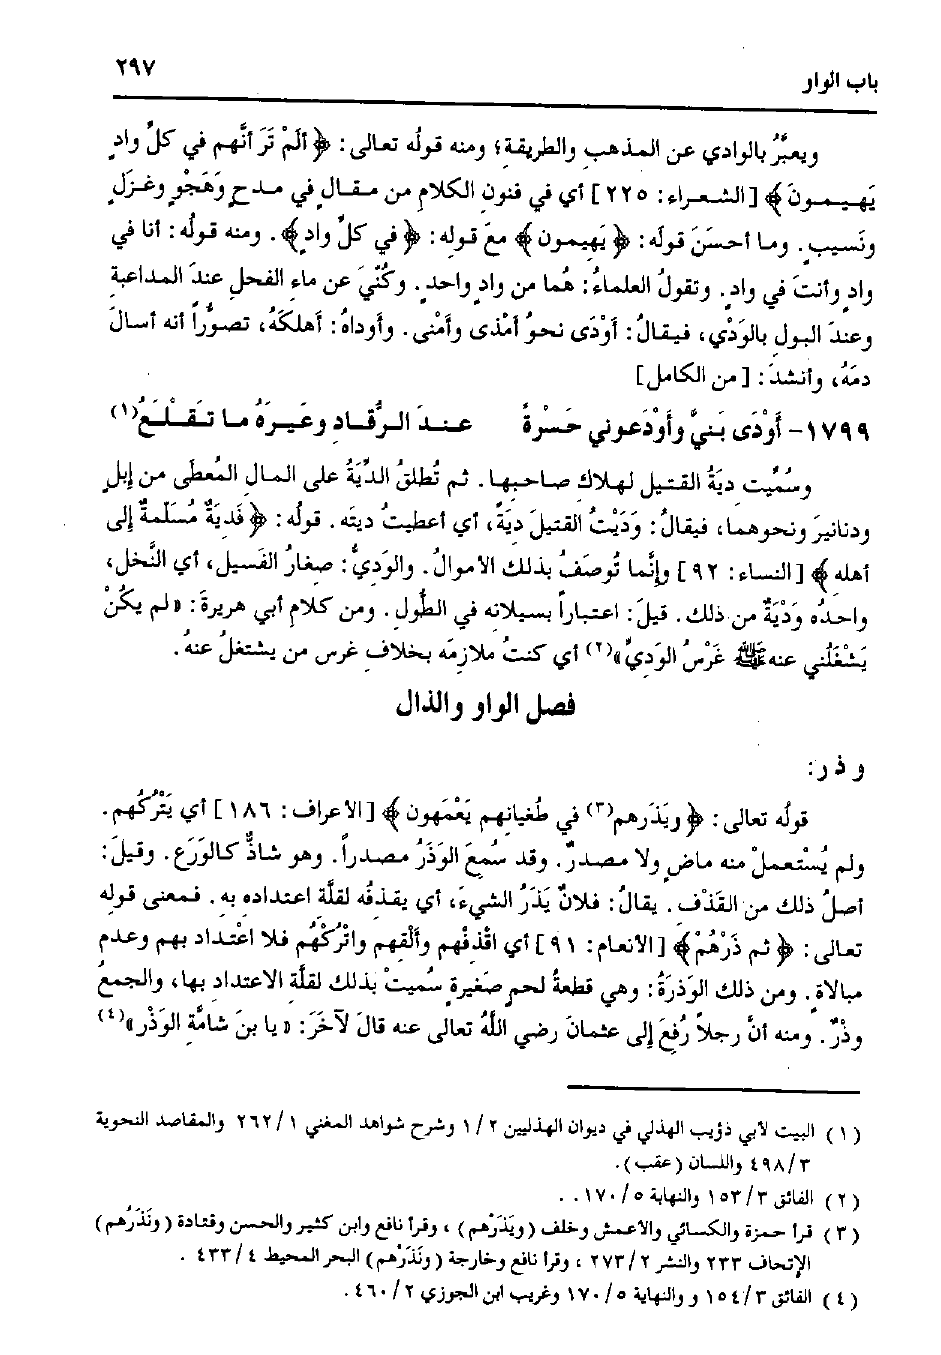 باب الواو
٢٩٧
ويعبَّرُ بالوادي عن المذهب والطريقة؛ ومنه قولُه تعالى: ﴿ ألَمْ تَرَ أنَّهم في كلِّ وادٍ
يَهيمونَ ﴾ [الشعراء: ٢٢٥] أي في فنون الكلام من مقالٍ في مدحٍ وَهَجْوٍ وغزلٍ
ونَسيبٍ. وما أحسَنَ قولَه: ﴿ يَهيمون ﴾ معَ قوله: ﴿ في كلِّ وادٍ﴾. ومنه قولُه: أنا في
وادٍ وأنتَ في وادٍ. وتقولُ العلماءُ: هُما من وادٍ واحدٍ. وكُنّيَ عن ماءِ الفحلِ عندَ المداعبةِ
وعندَ البول بالوَدْي، فيقالُ: أوْدَى نحوُ أمْذى وأمْنى. وأوداهُ: أهلكَهُ، تصوُّراً أنه أسالَ
دمَهُ، وأنشدَ: [من الكامل]
١٧٩٩- أَوْدَى بَنيَّ وأَوْدَعوني حَسْرةً عندَ الرُّقادِ وعَبرَةً ما تَقْلَعُ(١)
وسُمّيت ديَةُ القتيل لهلاك صاحبها. ثم تُطلقُ الدِّيَةُ على المال المُعطَى من إبلٍ
ودنانيرَ ونحوهما، فيقالُ: وَدَيْتُ القتيلَ ديةً، أي أعطيتُ ديتَه. قولُه: ﴿ فَديَةٌ مُسَلّمةٌ إلى
أهله ﴾ [النساء: ٩٢] وإنَّما تُوصَفُ بذلك الأموالُ. والوَدِيُّ: صغارُ الفَسيل، أي النَّخل،
واحدُه وَدْيَةٌ من ذلك. قيلَ: اعتباراً بسيلانه في الطُول. ومن كلام أبي هريرةَ: «لم يكُنْ
يَشْغَلُني عنه ﷺ غَرْسُ الوَدِيِّ»(٢) أي كنتُ ملازمَه بخلاف غرس من يشتغلُ عنهُ.
فصل الواو والذال
و ذ ر:
قولُه تعالى: ﴿ ويَذَرهم(٣) في طُغيانهم يَعْمَهون ﴾ [الأعراف: ١٨٦] أي يَتْرُكُهم.
ولم يُسْتعملْ منه ماضٍ ولا مصدرٌ. وقد سُمعَ الوَذَرُ مصدراً. وهو شاذٌّ كالوَرَع. وقيلَ:
أصلُ ذلك من القَذْف. يقالُ: فلانٌ يَذَرُ الشيءَ، أي يقذفُه لقلَّة اعتداده به. فمعنى قوله
تعالى: ﴿ ثم ذَرْهُمْ﴾ [الأنعام: ٩١] أي اقْذفْهم وألْقِهم واتْركْهُم فلا اعْتداد بهم وعدم
مبالاة. ومن ذلك الوَذرَةُ: وهي قطعةُ لحمٍ صَغيرة سُميتْ بذلك لقلَّة الاعتداد بها، والجمعُ
وذْرٌ. ومنه أنَّ رجلاً رُفِعَ إلى عثمانَ رضي اللَّهُ تعالى عنه قالَ لآخَرَ: «يا بنَ شامَّة الوَذْر»(٤)
(١) البيت لأبي ذؤيب الهذلي في ديوان الهذليين ٢/١ وشرح شواهد المغني ٢٦٢/١ والمقاصد النحوية
٤٩٨/٣ واللسان (عقب).
(٢) الفائق ١٥٣/٣ والنهاية ١٧٠/٥. .
(٣) قرأ حمزة والكسائي والأعمش وخلف (ويَذَرْهم)، وقرأ نافع وابن كثير والحسن وقتادة (ونَذَرُهم)
الإتحاف ٢٣٣ والنشر ٢٧٣/٢، وقرأ نافع وخارجة (ونَذَرْهم) البحر المحيط ٤٣٣/٤ .
(٤) الفائق ١٥٤/٣ و والنهاية ١٧٠/٥ وغريب ابن الجوزي ٤٦٠/٢.